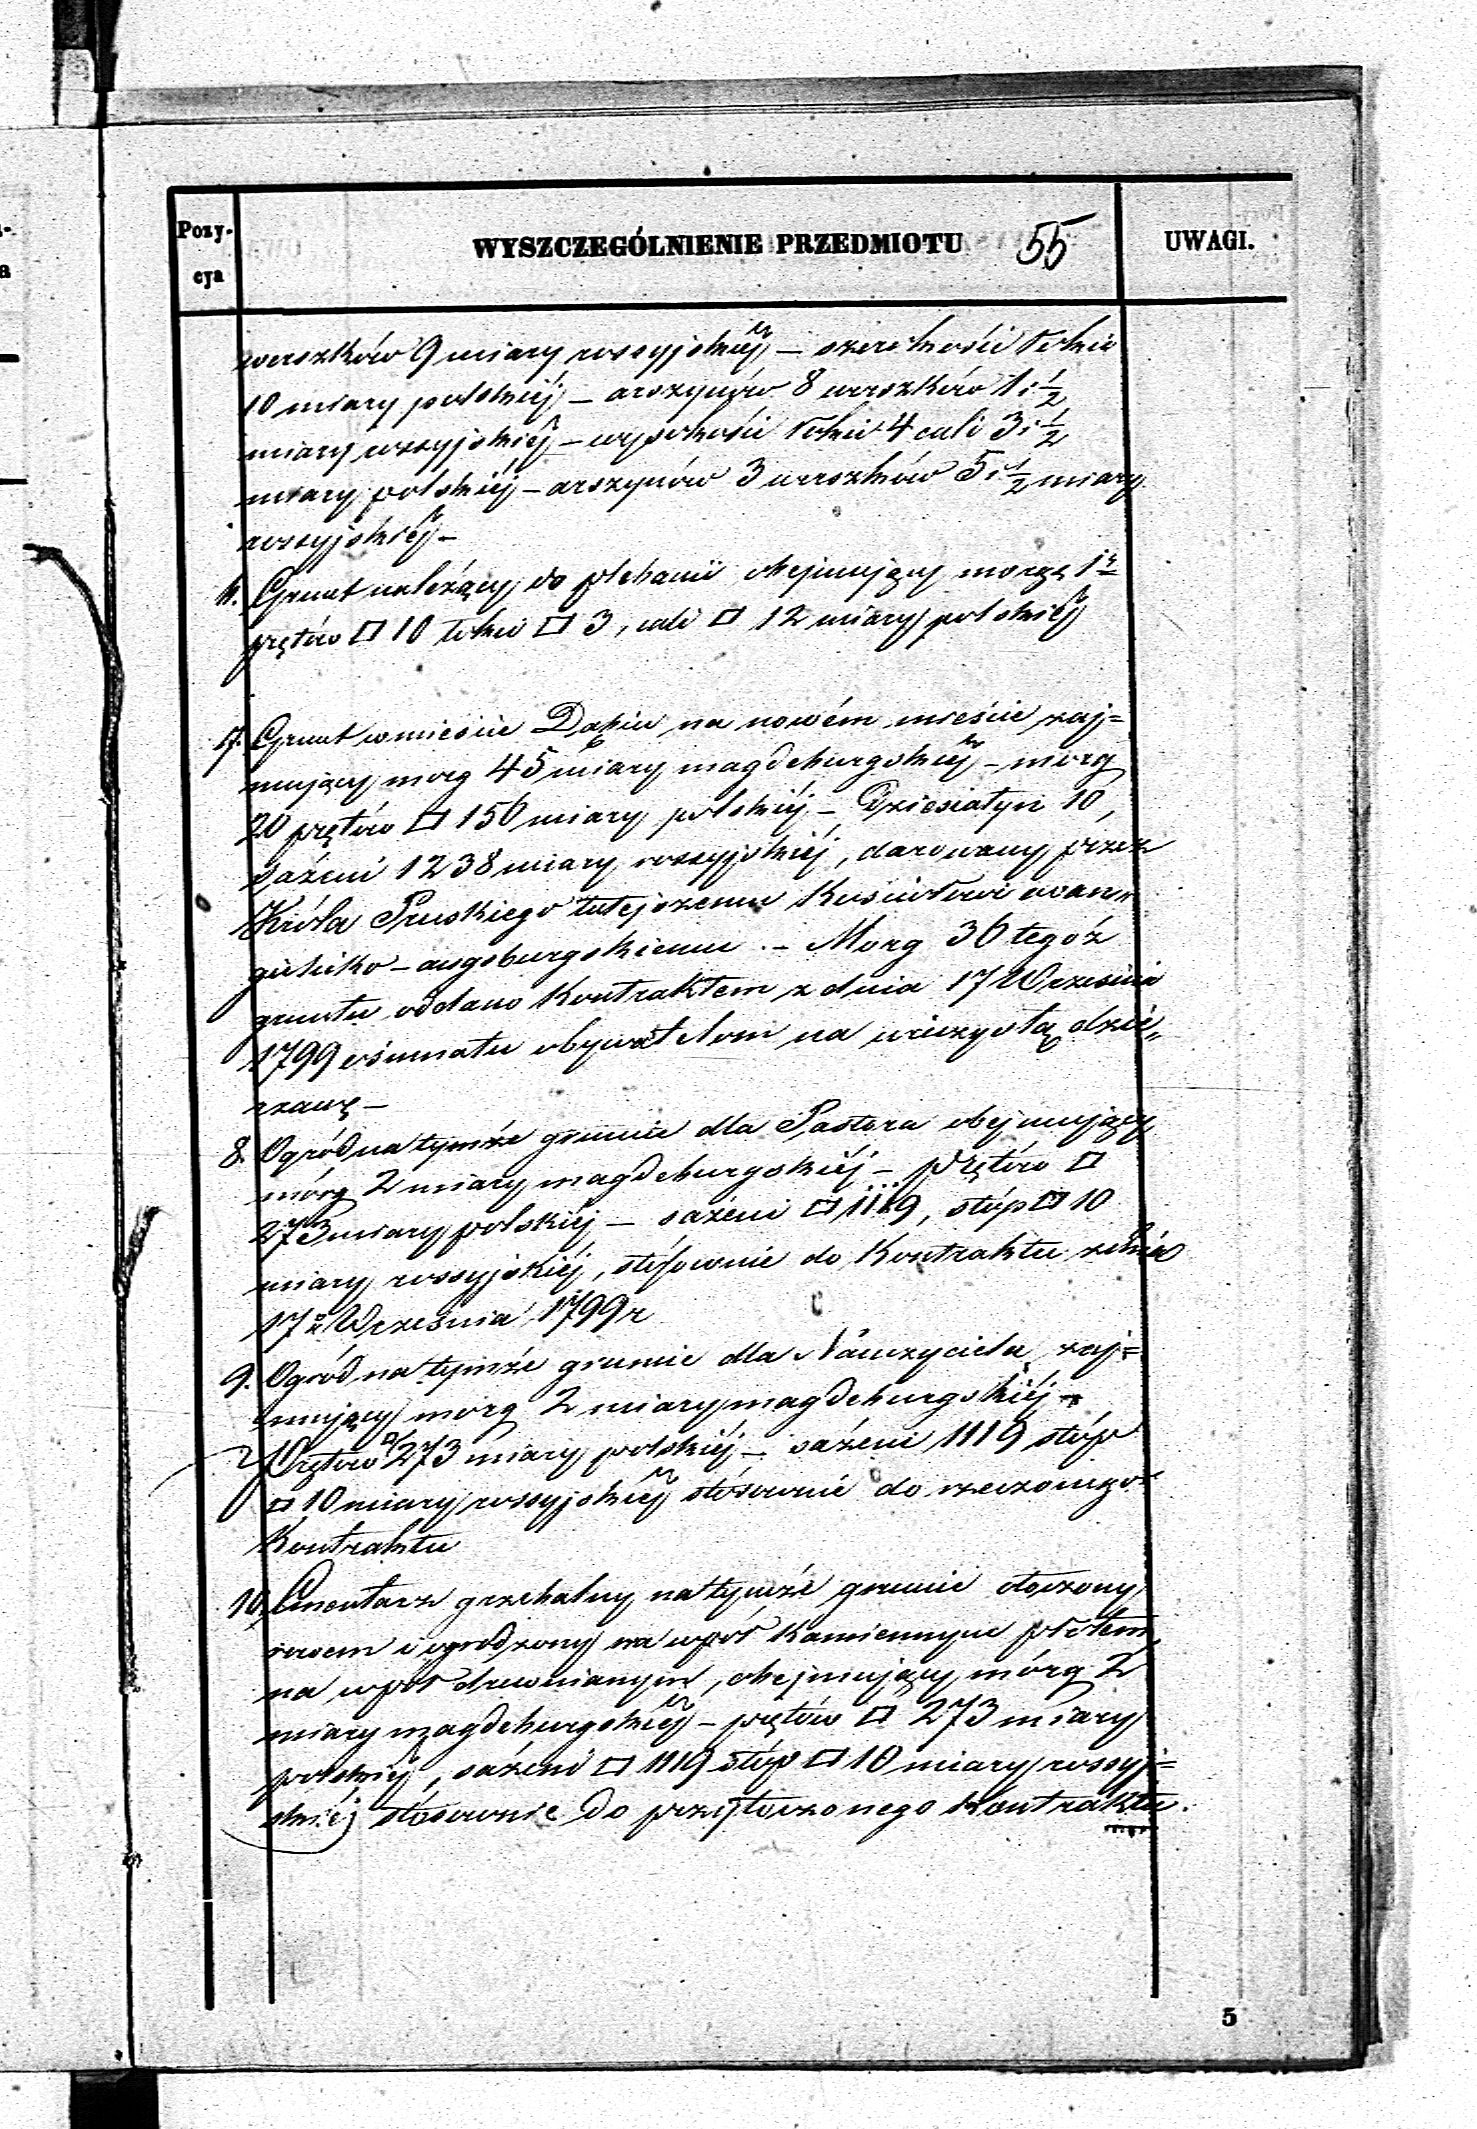 Pozy-
cya
WYSZCZEGÓLNIENIE PRZEDMIOTU
55
UWAGI.
werszków 9 miary rossyjskiéj – szerokości łokci
10 miary polskiéj – arszynów 8 werszków 1 i ½
miary rossyjskiéj – wysokości łokci 4 cali 3 i ½
miary polskiéj – arszynów 3 werszków 5 i ½ miary
rossyjskiéj –
Grunt należący do plebanii obejmujący morgę 1
prętów □ 10 łokci □ 3, cali □ 12 miary polskiéj
7. Grunt w mieście Dąbiu na nowém mieście zaj=
mujący morg 45 miary magdeburgskiéj – morg
20 prętów □ 156 miary polskiéj – Dziesiatyn 10,
sążeni 1238 miary rossyjskiéj, darowany przez
Króla Pruskiego tutejszemu Kościołowi ewan„
gielicko – augsburgskiemu. – Morg 36 tegóż
gruntu oddano Kontraktem z dnia 17 Września
1799 ośmnastu obywatelom na wieczystą dzier„
żawę –
8. Ogród na tymże gruncie dla Pastora obejmujący
mórg 2 miary magdeburgskiéj – prętów □
273 miary polskiéj – sążeni □ 1119, stóp □ 10
miary rossyjskiéj, stósownie do Kontraktu z dnia
17 Września 1799 r
9. Ogród na tymże gruncie dla Nauczyciela zaj=
mujący morg 2 miary magdeburgskiéj –
Prętów □ 273 miary polskiéj – sążeni 1119 stóp
□ 10 miary rossyjskiéj stósownie do rzeczonego
Kontraktu
10. Cmentarz grzebalny na tymże gruncie otoczony
rowem i ogrodzony na wpół kamiennym płotem,
na wpół drewnianym, obejmujący mórg 2
miary magdeburgskiéj – prętów □ 273 miary
polskiéj, sążeni □ 1119 stóp □ 10 miary rossyj=
skiéj stósownie do przytoczonego kontraktu.
5